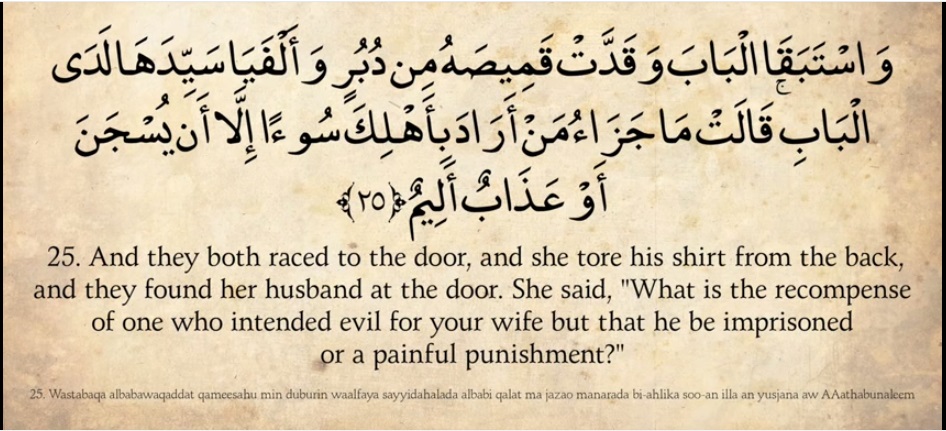 وَاسْتَبَقَا الْبَابَ وَقَدَّتْ قَمِيصَهُ مِن دُبُرٍ وَأَلْفَيَا سَيِّدَهَا لَدَى
الْبَابِ ۚ قَالَتْ مَا جَزَاءُ مَنْ أَرَادَ بِأَهْلِكَ سُوءًا إِلَّا أَن يُسْجَنَ
أَوْ عَذَابٌ أَلِيمٌ ﴿٢٥﴾
25. And they both raced to the door, and she tore his shirt from the back,
and they found her husband at the door. She said, "What is the recompense
of one who intended evil for your wife but that he be imprisoned
or a painful punishment?"
25. Wastabaqa albabawaqaddat qameesahu min duburin waalfaya sayyidahalada albabi qalat ma jazao manarada bi-ahlika soo-an illa an yusjana aw AAathabunaleem